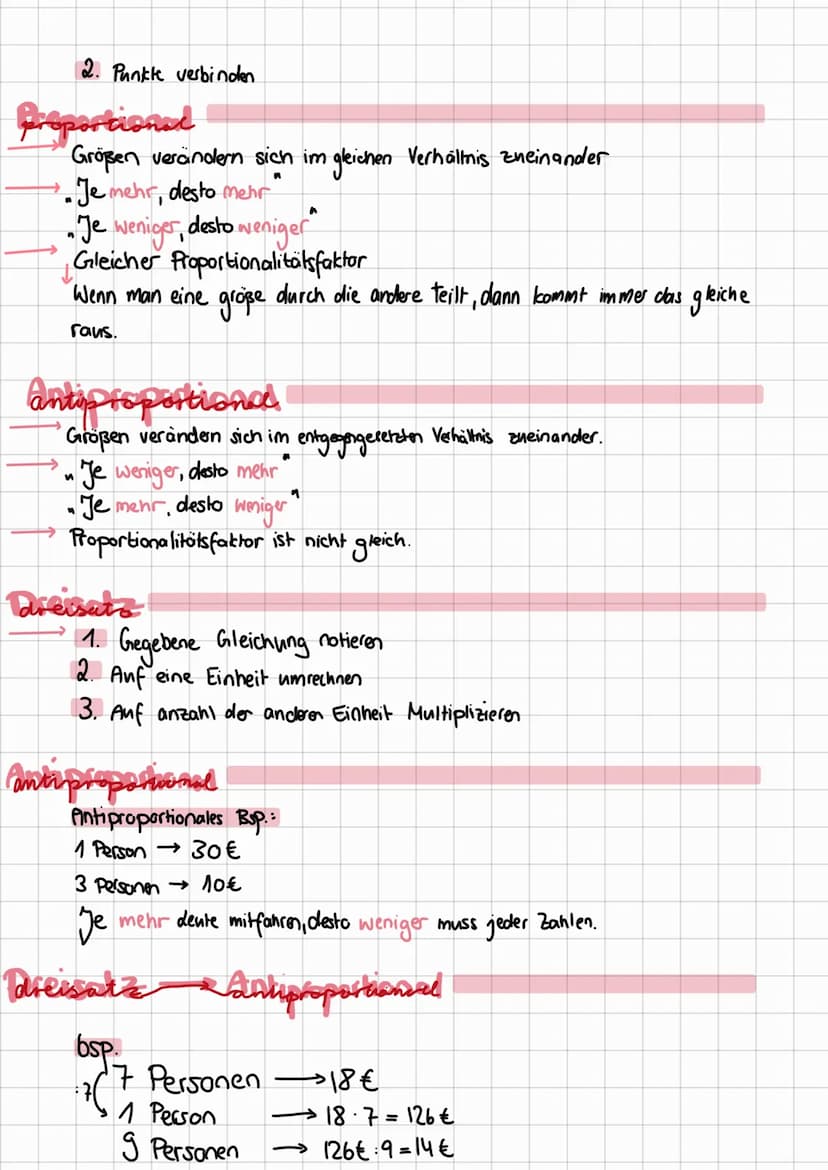 2. Punkte verbinden
Proportional
Größen verändern sich im gleichen Verhältnis zueinander
„Je mehr, desto mehr"
„Je weniger, desto weniger"
Gleicher Proportionalitätsfaktor
Wenn man eine größe durch die andere teilt, dann kommt immer das gleiche
raus.
Antiproportional
Größen verändern sich im entgegengesetzten Verhältnis zueinander.
„Je weniger, desto mehr"
„Je mehr, desto weniger"
Proportionalitätsfaktor ist nicht gleich.
Dreisatz
1. Gegebene Gleichung notieren
2. Auf eine Einheit umrechnen
3. Auf anzahl der anderen Einheit Multiplizieren
Antiproportional
Antiproportionales Bsp.:
1 Person → 30€
3 Personen → 10€
Je mehr Leute mitfahren, desto weniger muss jeder Zahlen.
Dreisatz → Antiproportional
bsp.
7 Personen → 18€
:7
1 Person → 18 · 7 = 126€
9 Personen → 126€ : 9 = 14€